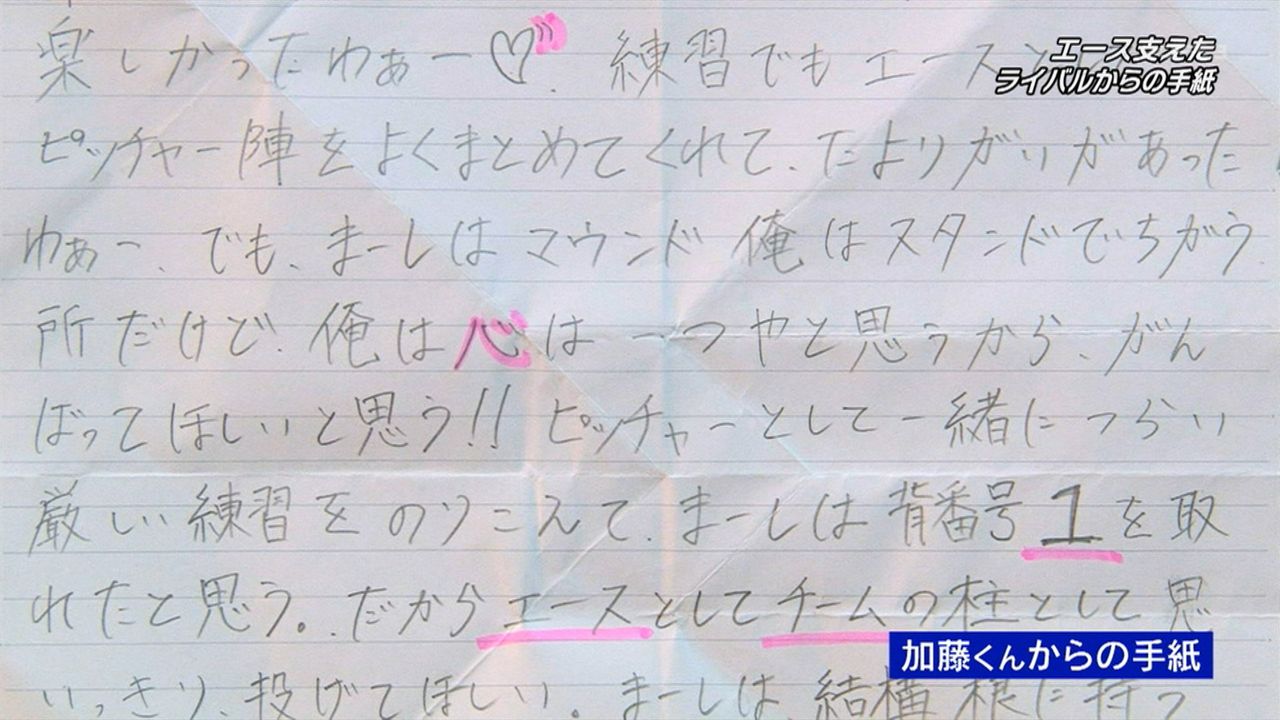 エース支えた
ライバルからの手紙
楽しかったわぁー♡. 練習でもエースと
ピッチャー陣をよくまとめてくれて、たよりがいがあった
わぁー、でも、まーしはマウンド俺はスタンドでちがう
所だけど、俺は心は一つやと思うから、がん
ばってほしいと思う!!ピッチャーとして一緒につらい
厳しい練習をのりこえて、まーしは背番号1を取
れたと思う。だからエースとしてチームの柱として思
いっきり、投げてほしい。まーしは、結構根に持つ
加藤くんからの手紙